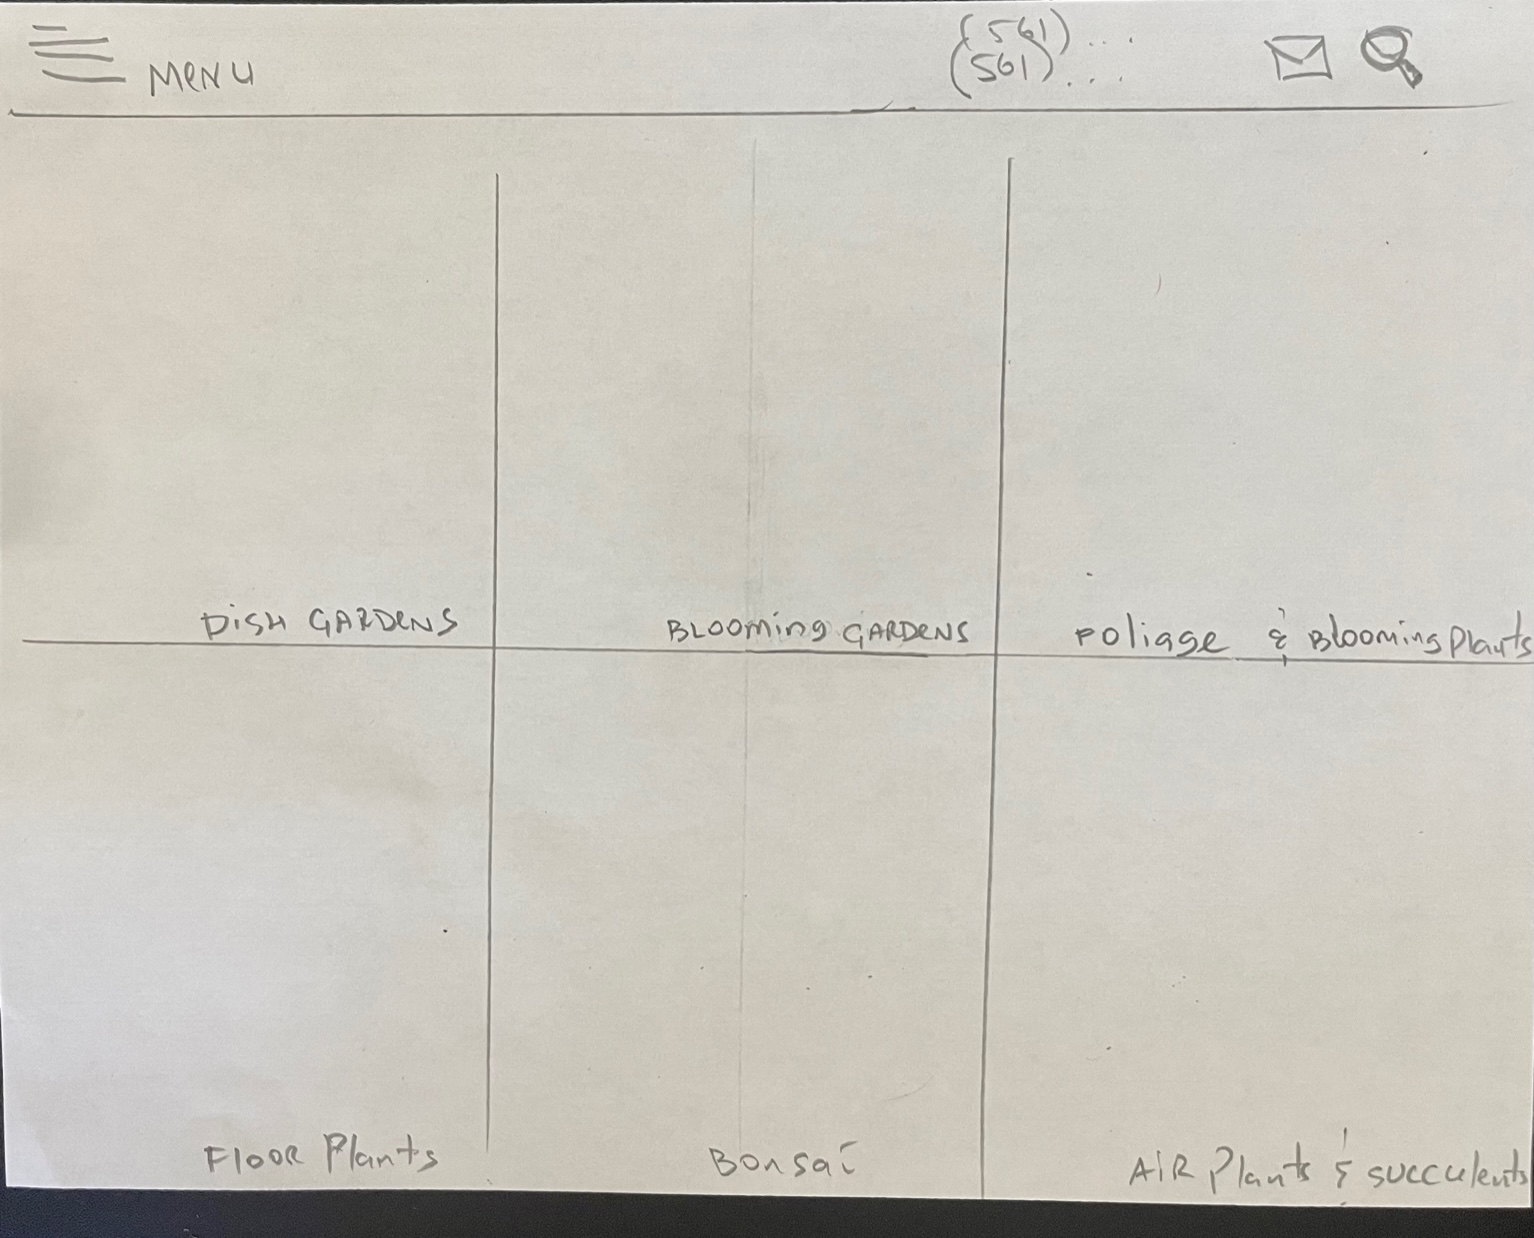 MENU
(561)...
(561)...
DISH GARDENS
BLOOMING GARDENS
Foliage & Blooming Plants
FLOOR Plants
Bonsai
AIR Plants & succulents